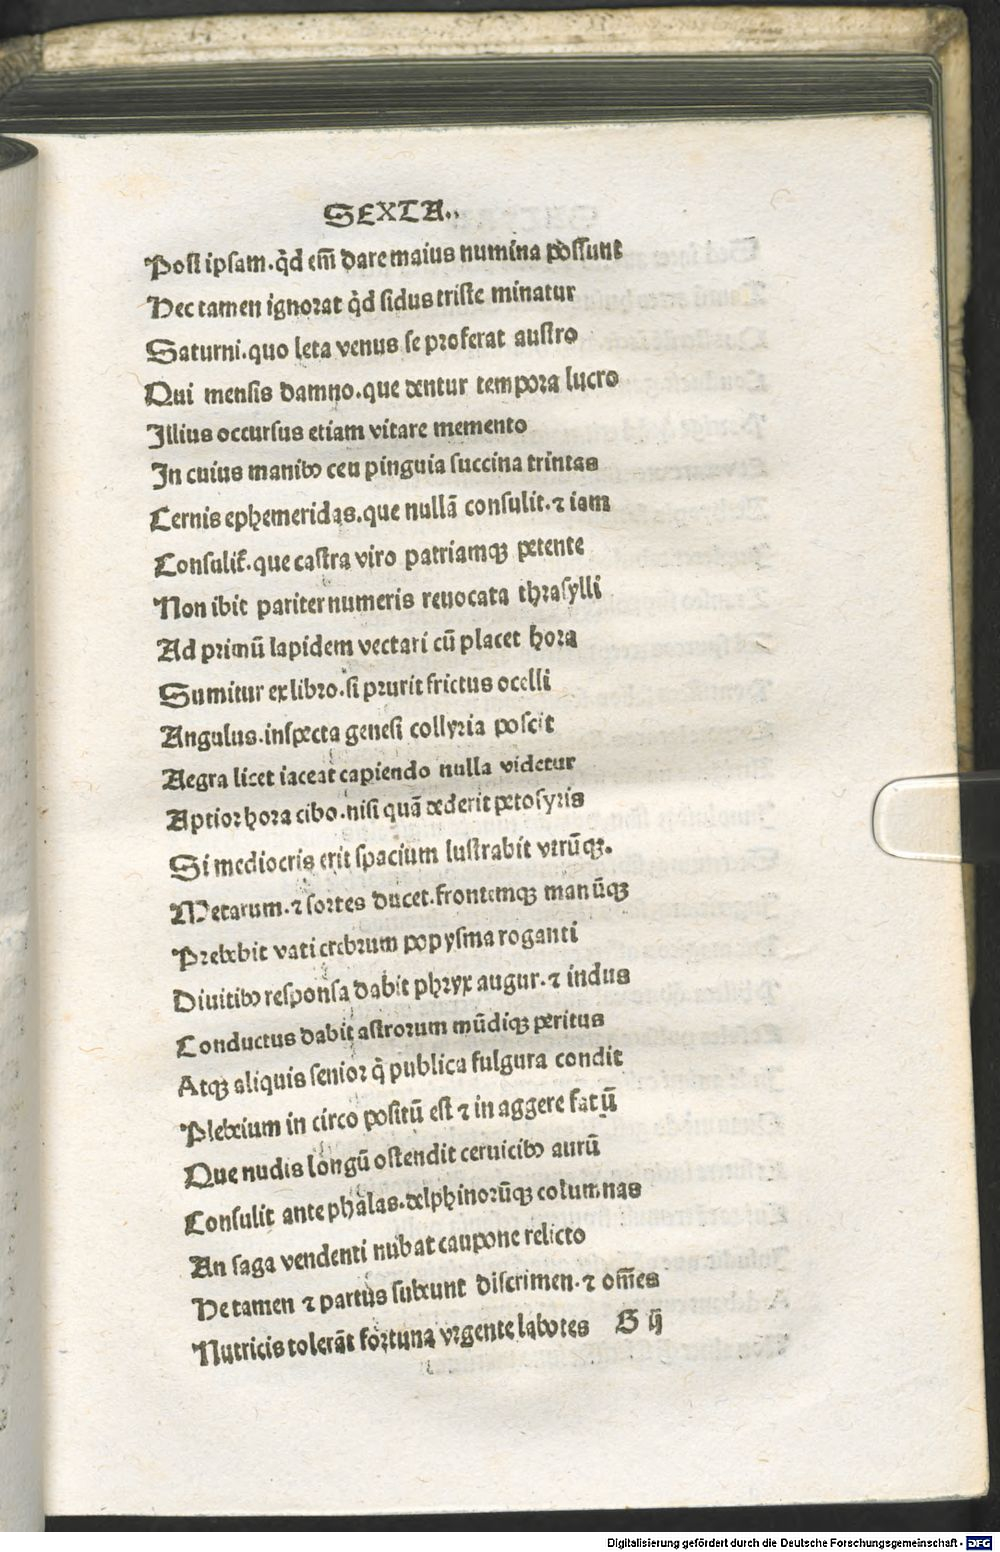 SEXTA..
Post ipsam.qd em̄ dare maius numina possunt
Hec tamen ignorat qd sidus triste minatur
Saturni.quo leta venus se proferat austro
Qui mensis damno.que dentur tempora lucro
Illius occursus etiam vitare memento
In cuius manibꝰ ceu pinguia succina trintas
Cernis ephemeridas.que nullā consulit.⁊ iam
Consulit̉.que castra viro patriamqꝫ petente
Non ibit pariter numeris revocata thrasylli
Ad primū lapidem vectari cū placet hora
Sumitur ex libro.si prurit frictus ocelli
Angulus.inspecta genesi collyria poscit
Aegra licet iaceat capiendo nulla videtur
Aptior hora cibo.nisi quā dederit petosyris
Si mediocris erit spacium lustrabit vtrūqꝫ.
Metarum.⁊ sortes ducet.frontemqꝫ manūqꝫ
Prebebit vati crebrum popysma roganti
Diuitibꝰ responsa dabit phryx augur.⁊ indus
Conductus dabit astrorum mūdiqꝫ peritus
Atqꝫ aliquis senior q̄ publica fulgura condit
Plebeium in circo positū est ⁊ in aggere fatū
Que nudis longū ostendit ceruicibꝰ aurū
Consulit ante phalas.delphinorūqꝫ columnas
An saga vendenti nubat caupone relicto
He tamen ⁊ partus subeunt discrimen.⁊ om̄es
Nutricis tolerāt fortuna vrgente labores G ij
Digitalisierung gefördert durch die Deutsche Forschungsgemeinschaft - DFG